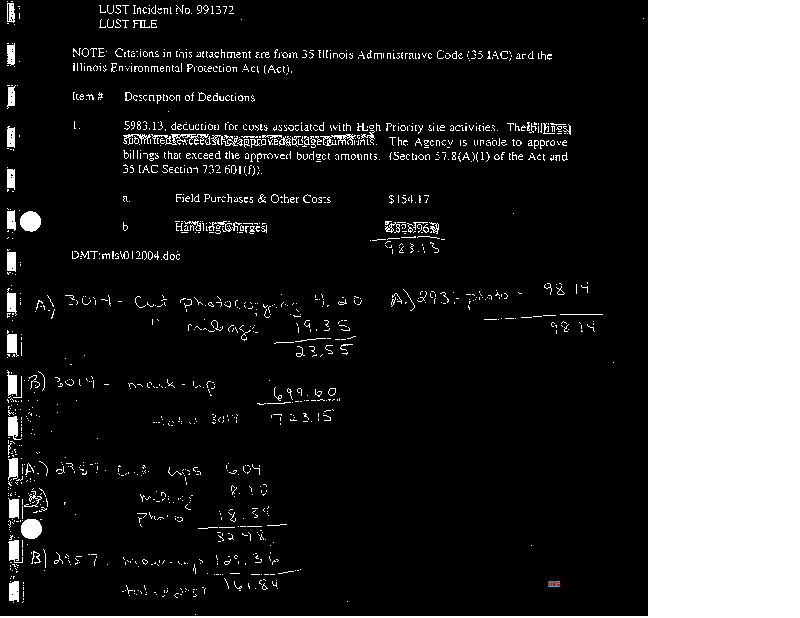 LUST Incident No. 991372
LUST FILE
NOTE: Citations in this attachment are from 35 Illinois Administrative Code (35 IAC) and the
Illinois Environmental Protection Act (Act).
Item # Description of Deductions
1. $983.13, deduction for costs associated with High Priority site activities. The billings
submitted exceeds the approved budget amounts. The Agency is unable to approve
billings that exceed the approved budget amounts. (Section 57.8(A)(1) of the Act and
35 IAC Section 732.601(f)).
a. Field Purchases & Other Costs $154.17
b Handling Charges $828.96
983.13
DMT:mls\012004.doc
A.) 3014 - Cut photocopying 4.20 A.) 293 - photo - 98.14
" mileage 19.35 98.14
23.55
B) 3014 - mark-up 699.60
total 3014 723.15
A.) 2957 - Cut ups 6.04
mileage 8.10
photo 18.34
32.48
B) 2957 - mark-up 129.36
total 2957 161.84